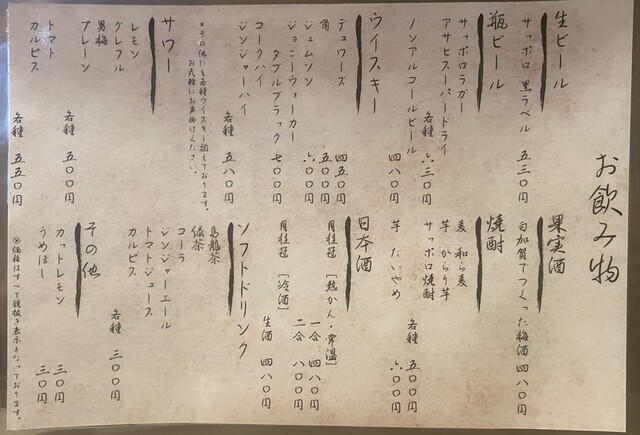 お飲み物
生ビール
サッポロ 黒ラベル 五三〇円
瓶ビール
サッポロラガー
アサヒスーパードライ
各種 六三〇円
ノンアルコールビール 四八〇円
ウイスキー
デュワーズ 四五〇円
角 五〇〇円
ジェムソン 六〇〇円
ジョニーウォーカー
ダブルブラック 七〇〇円
コークハイ
ジンジャーハイ
各種 五八〇円
*その他にも各種ウイスキー揃えております。
お気軽にお声掛けください。
サワー
レモン
グレフル
男梅
プレーン
各種 五〇〇円
トマト
カルピス
各種 五五〇円
果実酒
白加賀でつくった梅酒 四八〇円
焼酎
麦 和ら麦
芋 からり芋
サッポロ焼酎
各種 五〇〇円
芋 だいやめ 六〇〇円
日本酒
月桂冠 [熱かん・常温]
一合 四八〇円
二合 八〇〇円
月桂冠 [冷酒]
生酒 四八〇円
ソフトドリンク
烏龍茶
緑茶
コーラ
ジンジャーエール
トマトジュース
カルピス
各種 三〇〇円
その他
カットレモン 三〇円
うめぼし 三〇円
※価格はすべて税抜き表示となっております。